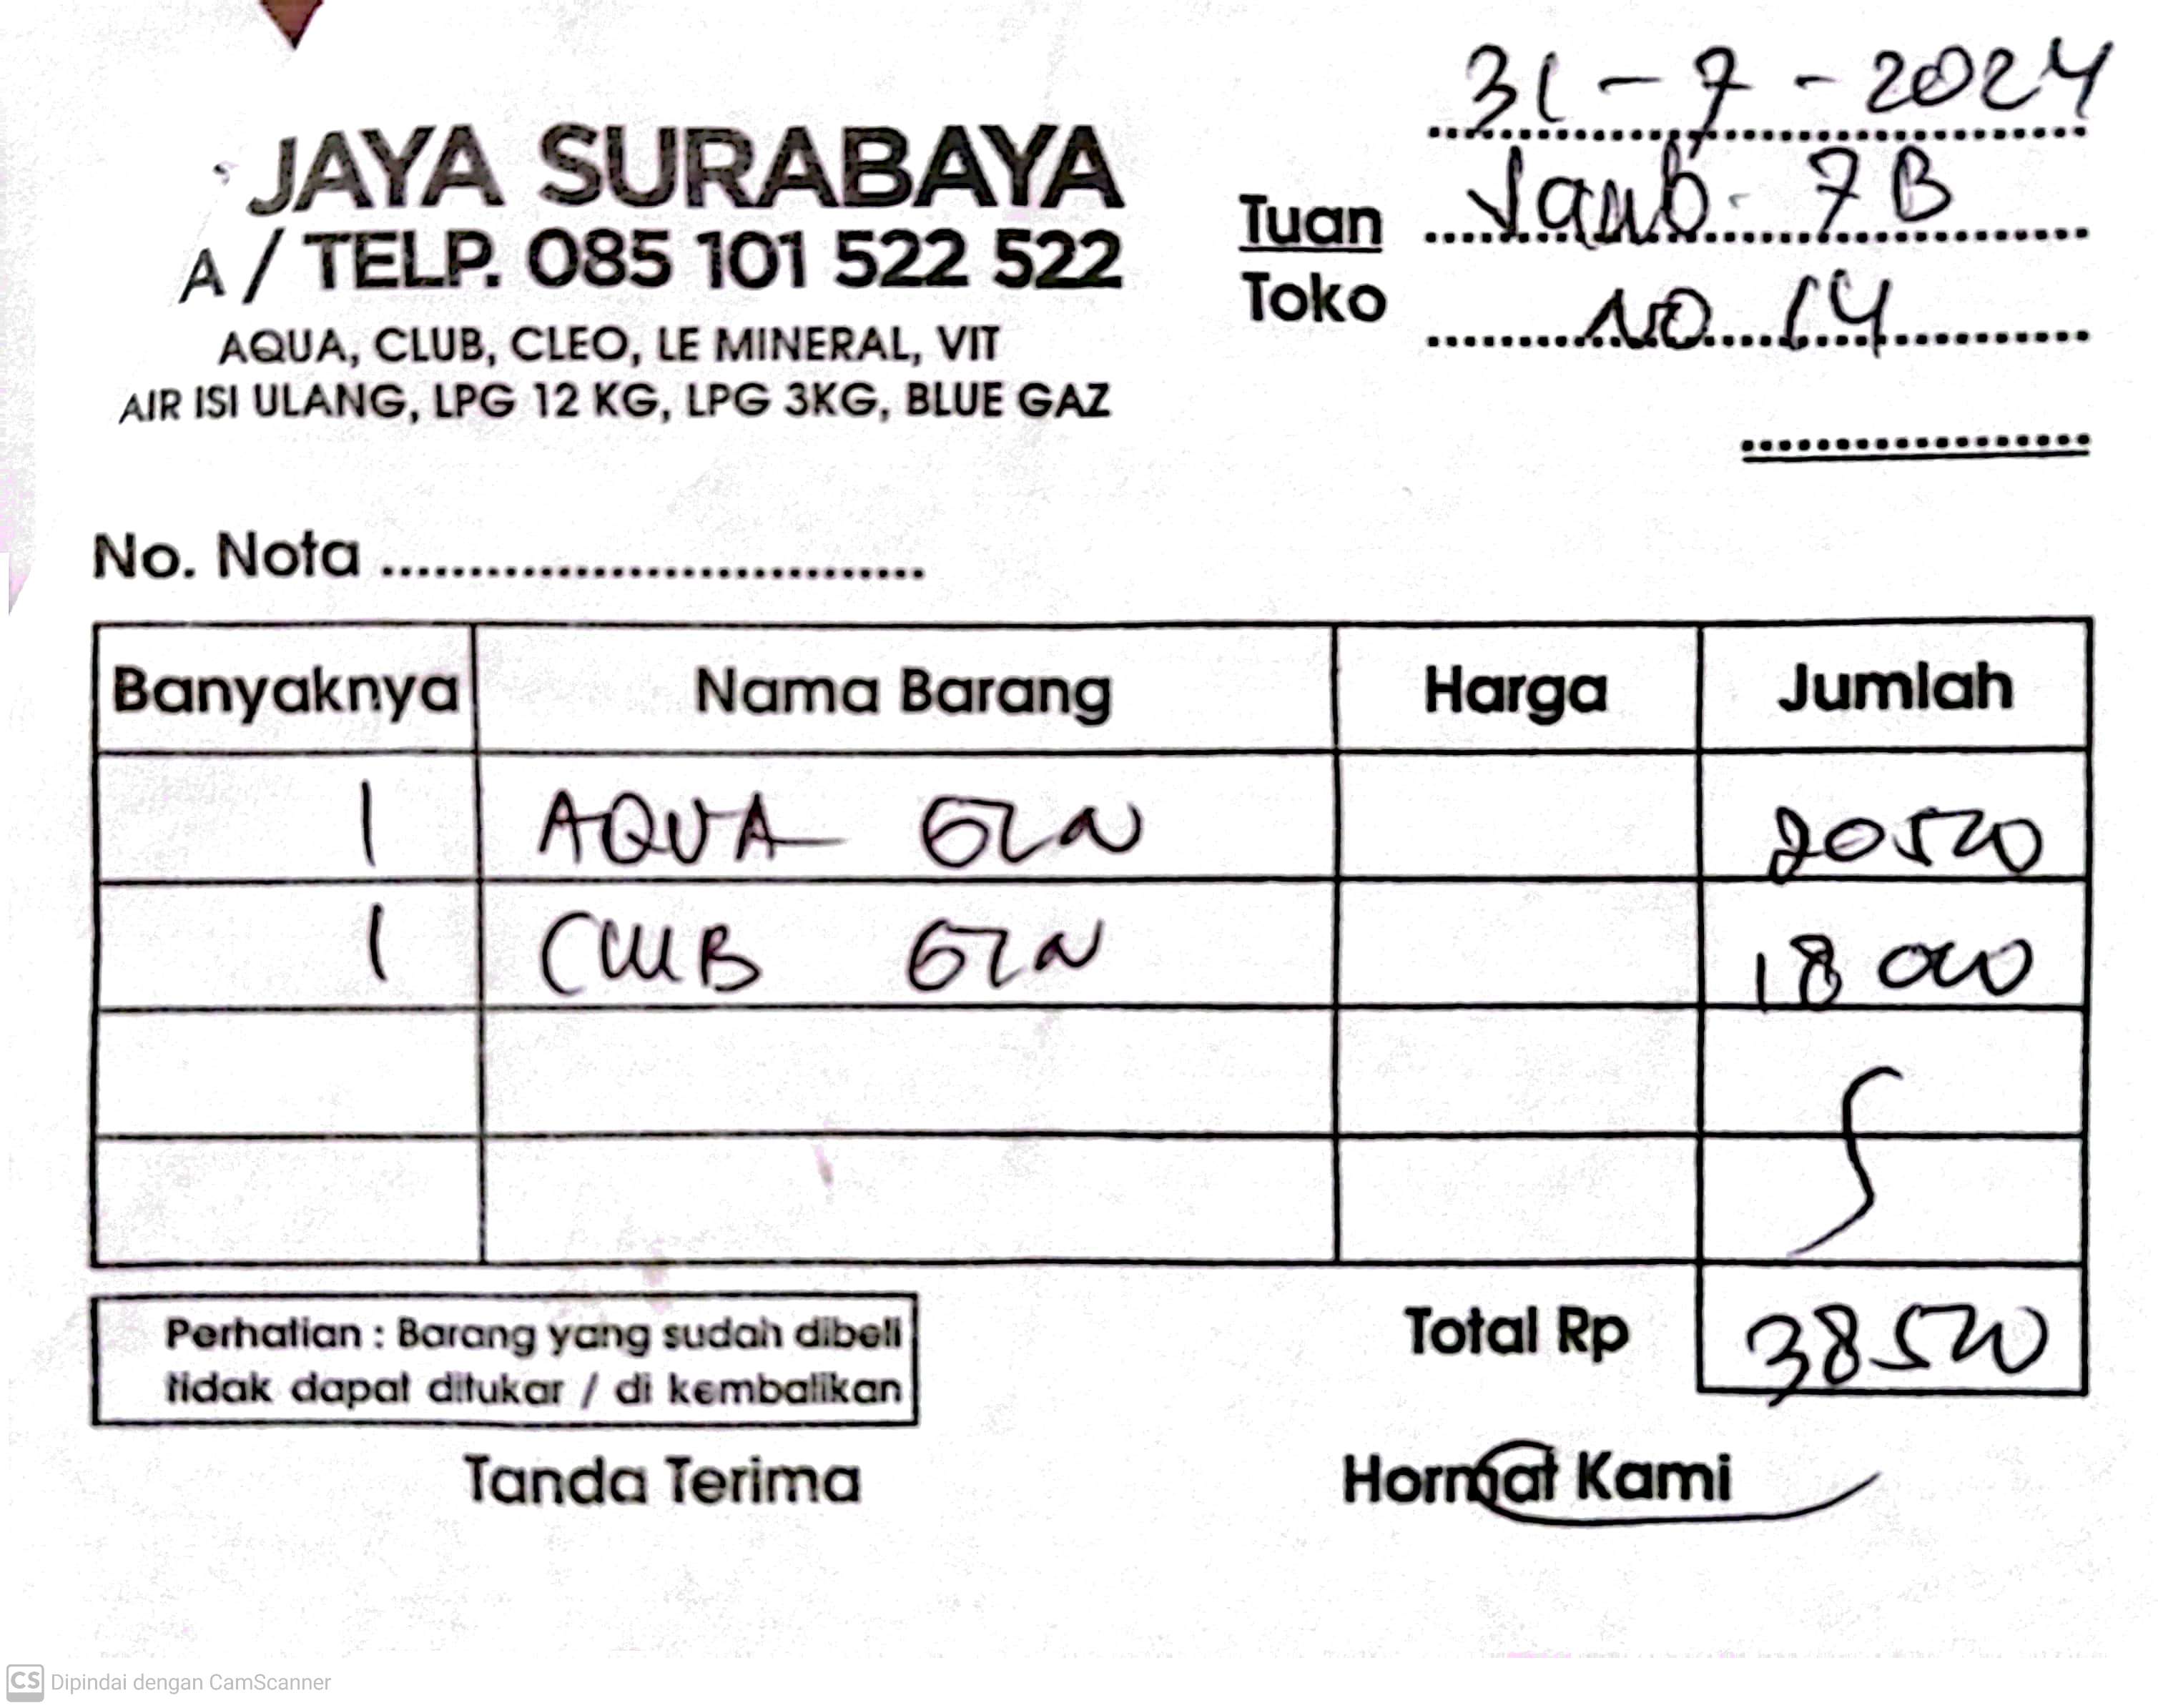 31-7-2024
JAYA SURABAYA
A / TELP. 085 101 522 522
AQUA, CLUB, CLEO, LE MINERAL, VIT
AIR ISI ULANG, LPG 12 KG, LPG 3KG, BLUE GAZ
Tuan 7B
Toko NO 14
No. Nota
Banyaknya Nama Barang Harga Jumlah
1 AQUA GLN 20500
1 CLUB GLN 18000
Total Rp 38500
Perhatian : Barang yang sudah dibeli
tidak dapat ditukar / di kembalikan
Tanda Terima Hormat Kami
CS Dipindai dengan CamScanner